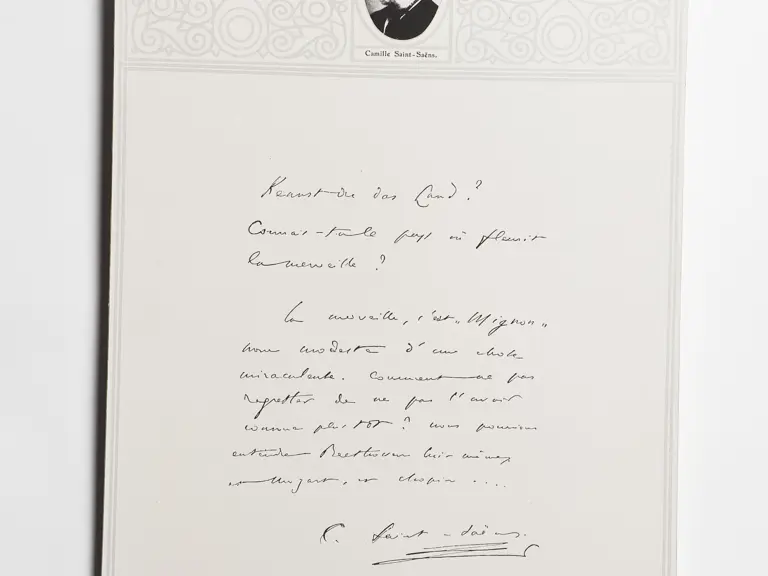 Camille Saint-Saëns.
Kennst du das Land?
Connais-tu le pays où fleurit
la merveille?
La merveille, c'est "Mignon"
nom modeste d'une chose
miraculeuse. Comment ne pas
regretter de ne pas l'avoir
connue plus tôt? nous pourrions
entendre Beethoven lui-même,
et Mozart, et Chopin ....
C. Saint-Saëns.